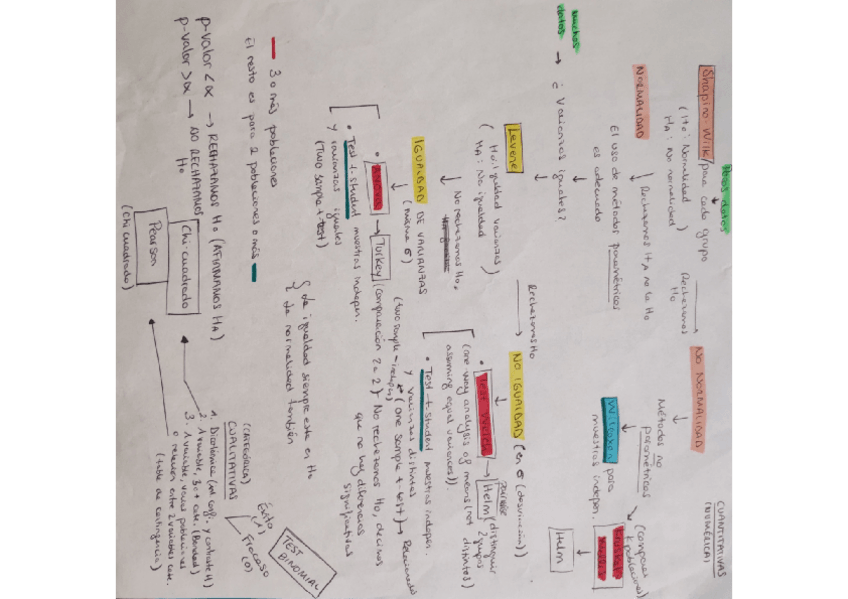 CUANTITATIVAS
(NUMÉRICA)
Pocos datos
Shapiro-Wilk para cada grupo
(Ho: Normalidad
HA: No normalidad)
Rechazamos
Ho
NO NORMALIDAD
NORMALIDAD
Rechazamos HA, no la Ho
Métodos no
paramétricos
El uso de métodos paramétricos
es adecuado
Wilcoxon para
muestras indepen.
(compara
k poblaciones)
Kruskal
Wallis
Holm
muchos
datos
¿Varianzas iguales?
Levene
(Ho: igualdad varianzas
HA: No igualdad)
Rechazamos Ho
NO IGUALDAD (en σ (desviación))
No rechazamos Ho,
IGUALDAD DE VARIANZAS
(misma σ)
• Test Welch
Holm
(distinguir
2 grupos)
(one way analysis of means (not
assuming equal variances)).
• Test t-student muestras indepen.
y varianzas distintas
(two sample-indep)
(One sample t-test)
Relacionado
Turkey (comparación 2 a 2)
No rechazamos Ho, decimos
que no hay diferencias
significativas
• Test t-student muestras indepen.
y varianzas iguales
(Two sample t-test)
de igualdad siempre esta en Ho
y de normalidad también
3 o más poblaciones
El resto es para 2 poblaciones o más
p-valor < α → RECHAZAMOS Ho (AFIRMAMOS HA)
p-valor > α → NO RECHAZAMOS
Ho
(CATEGÓRICA)
CUALITATIVAS
Éxito
(1)
Fracaso
(0)
TEST
BINOMIAL
1. Dicotómica (int conf. y contraste H)
2. 1 variable, 3 o + cate. (Bondad)
3. 1 variable, varias poblaciones
o relación entre 2 variables cate.
(tabla de contingencia)
Chi-cuadrado
Pearson
(Chi cuadrado)